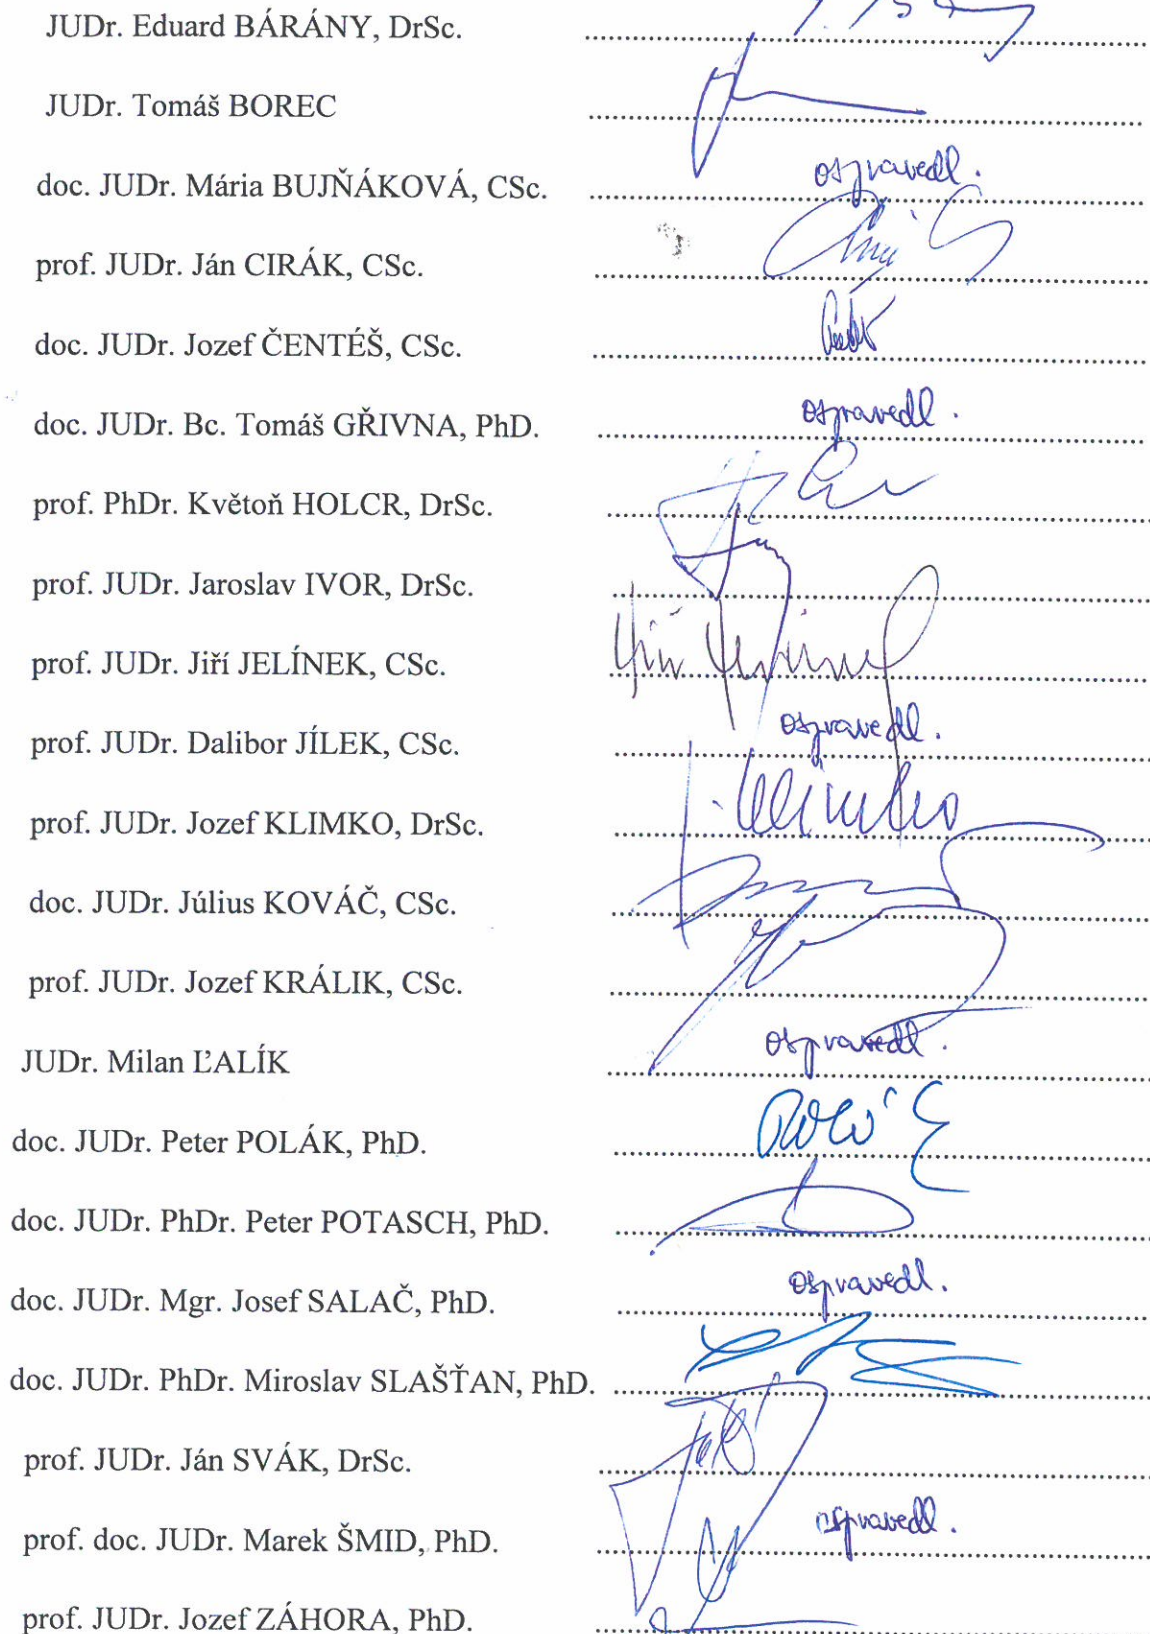 JUDr. Eduard BÁRÁNY, DrSc.
JUDr. Tomáš BOREC
doc. JUDr. Mária BUJŇÁKOVÁ, CSc. ospravedl.
prof. JUDr. Ján CIRÁK, CSc.
doc. JUDr. Jozef ČENTÉŠ, CSc.
doc. JUDr. Bc. Tomáš GŘIVNA, PhD. ospravedl.
prof. PhDr. Květoň HOLCR, DrSc.
prof. JUDr. Jaroslav IVOR, DrSc.
prof. JUDr. Jiří JELÍNEK, CSc.
prof. JUDr. Dalibor JÍLEK, CSc. ospravedl.
prof. JUDr. Jozef KLIMKO, DrSc. J. Klimko
doc. JUDr. Július KOVÁČ, CSc.
prof. JUDr. Jozef KRÁLIK, CSc.
JUDr. Milan ĽALÍK ospravedl.
doc. JUDr. Peter POLÁK, PhD.
doc. JUDr. PhDr. Peter POTASCH, PhD.
doc. JUDr. Mgr. Josef SALAČ, PhD. ospravedl.
doc. JUDr. PhDr. Miroslav SLAŠŤAN, PhD.
prof. JUDr. Ján SVÁK, DrSc.
prof. doc. JUDr. Marek ŠMID, PhD. ospravedl.
prof. JUDr. Jozef ZÁHORA, PhD.